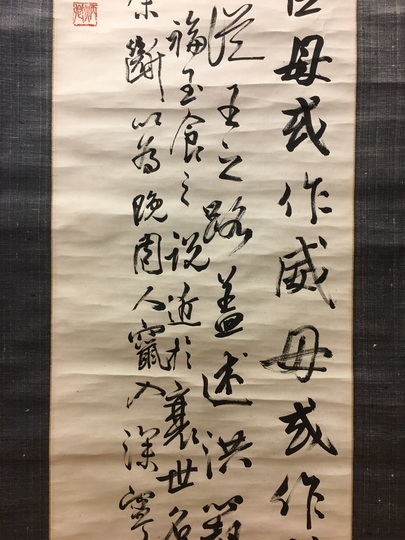 毋或作威毋或作
從王之路蓋述洪範
福玉食之說近於衰世名
斷以為晚周人竄入深寧